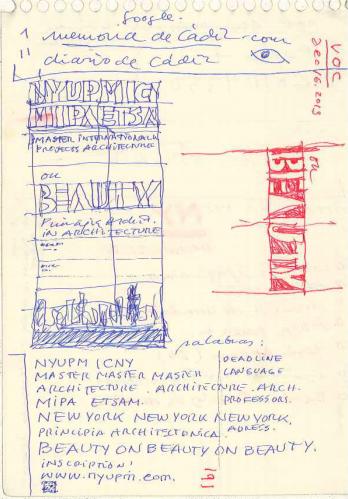 Google.
memoria de Cádiz.com
diario de cádiz
VOC
DEC 16. 2013
NYUPMICY
MIPAETSA
MASTER INTERNATIONAL
PROYECTS ARCHITECTURE
on
BEAUTY
IN ARCHITECTURE
on
BEAUTY
palabras:
NYUPM ICNY
MASTER MASTER MASTER
ARCHITECTURE. ARCHITECTURE. ARCH.
MIPA ETSAM.
NEW YORK NEW YORK NEW YORK.
PRINCIPIA ARCHITECTONICA.
BEAUTY ON BEAUTY ON BEAUTY.
INSCRIPTION!
www.nyupm.com.
DEADLINE
LANGUAGE
PROFESSORS.
ADRESS.
191